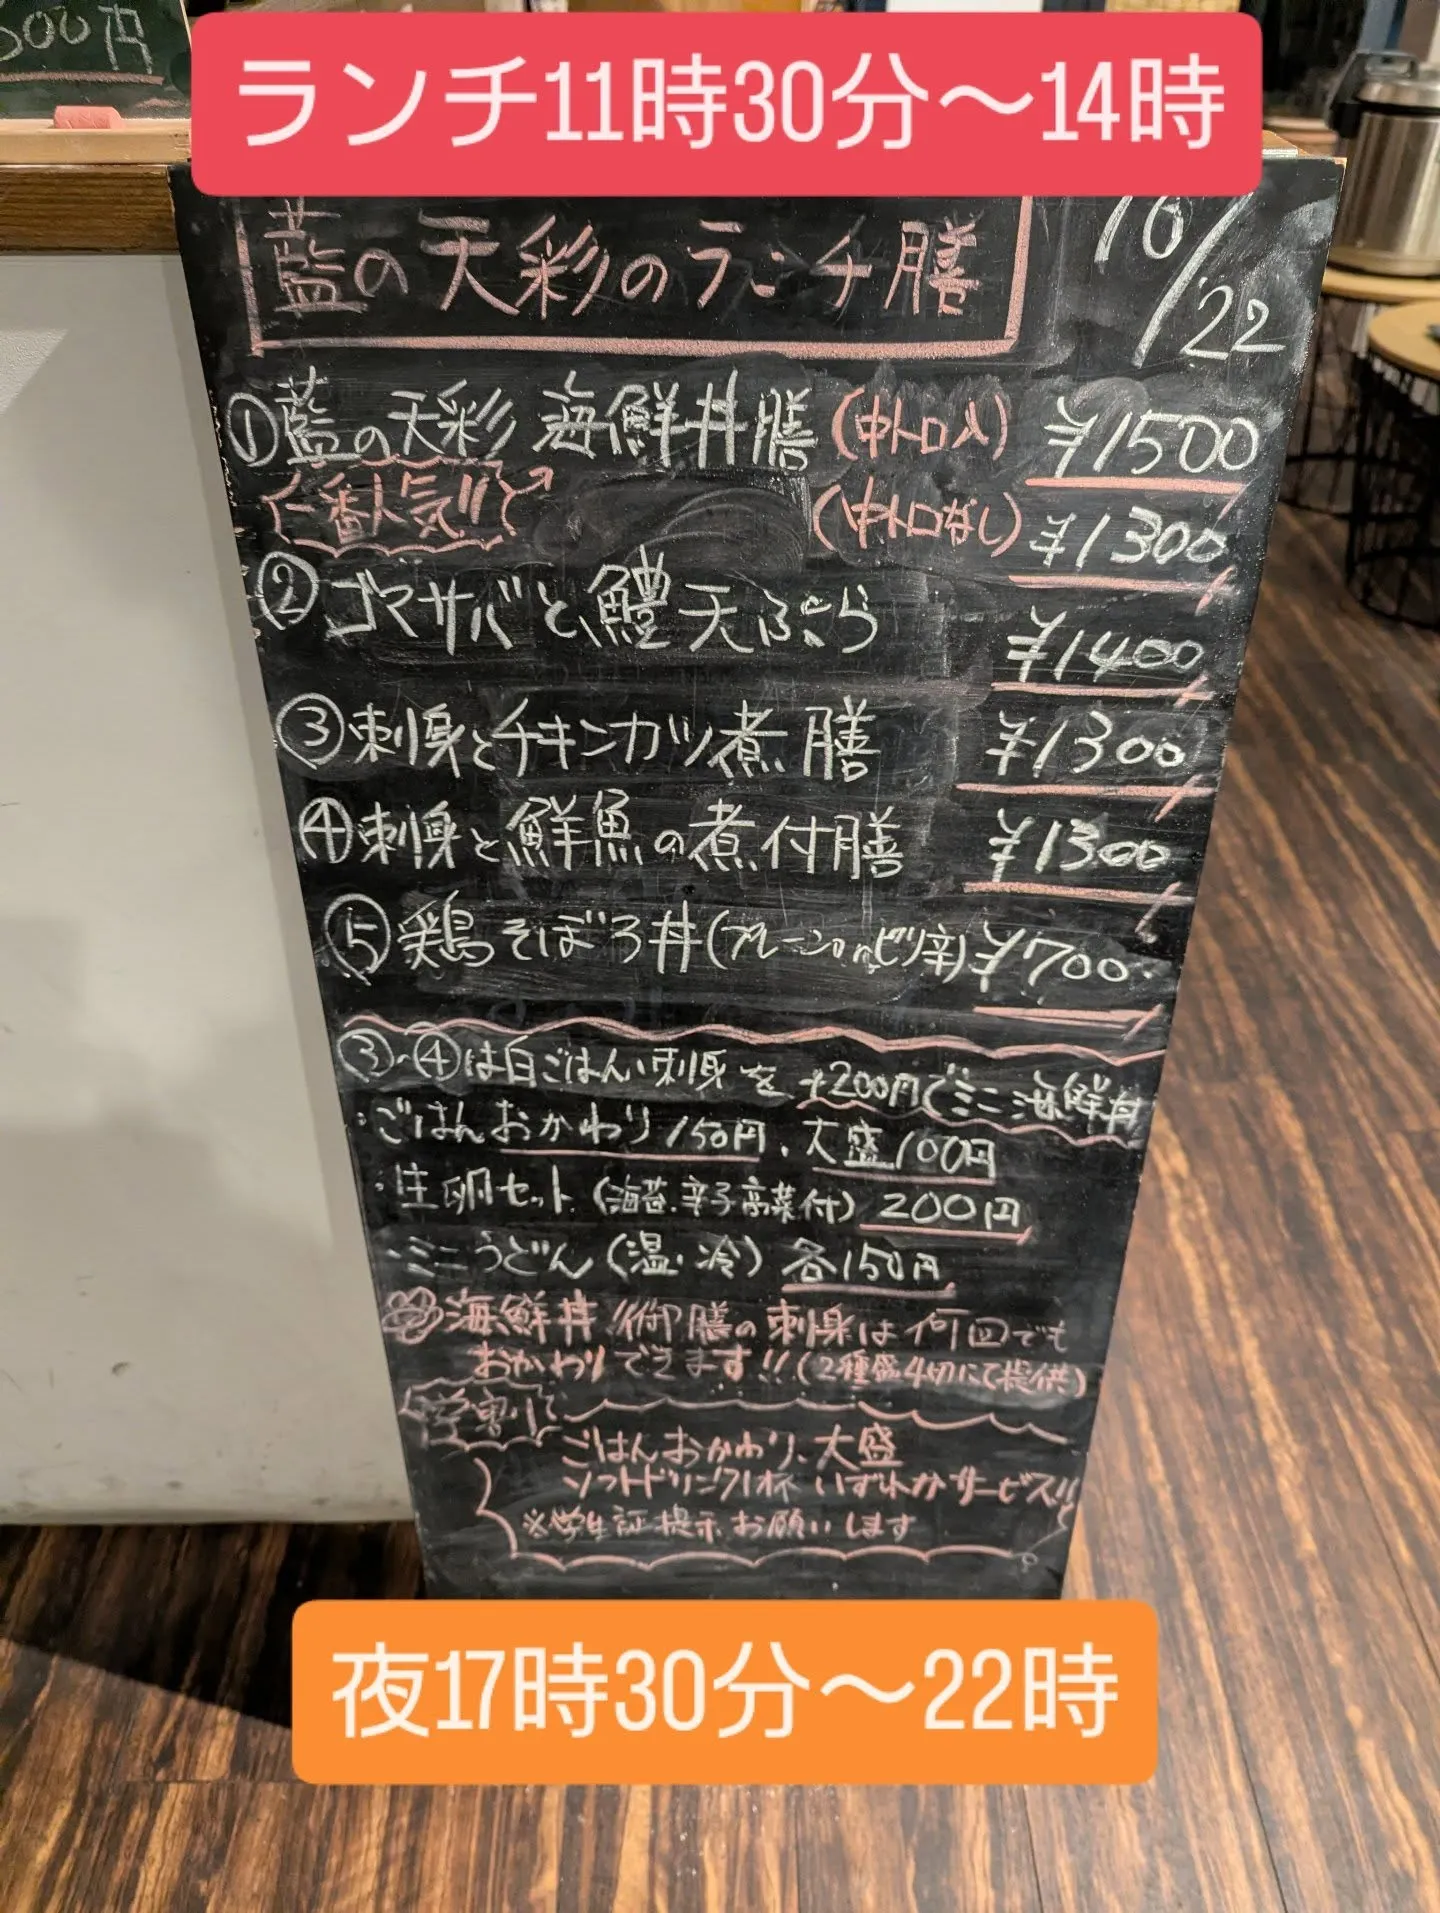 500円
ランチ11時30分〜14時
藍の天彩のランチ膳
10/22
①藍の天彩 海鮮丼膳(中トロ入) ¥1500
一番人気!! (中トロなし) ¥1300
②ゴマサバと鱧天ぷら ¥1400
③刺身とチキンカツ煮膳 ¥1300
④刺身と鮮魚の煮付膳 ¥1300
⑤鶏そぼろ丼(プレーンorピリ辛) ¥700
③〜④は白ごはん、刺身を+200円でミニ海鮮丼
・ごはんおかわり150円、大盛100円
・生卵セット(海苔・辛子高菜付) 200円
・ミニうどん(温・冷) 各150円
海鮮丼/御膳の刺身は何回でも
おかわりできます!!(2種盛4切にて提供)
学割
ごはんおかわり、大盛
ソフトドリンク1杯 いずれかサービス!!
※学生証提示お願いします
夜17時30分〜22時